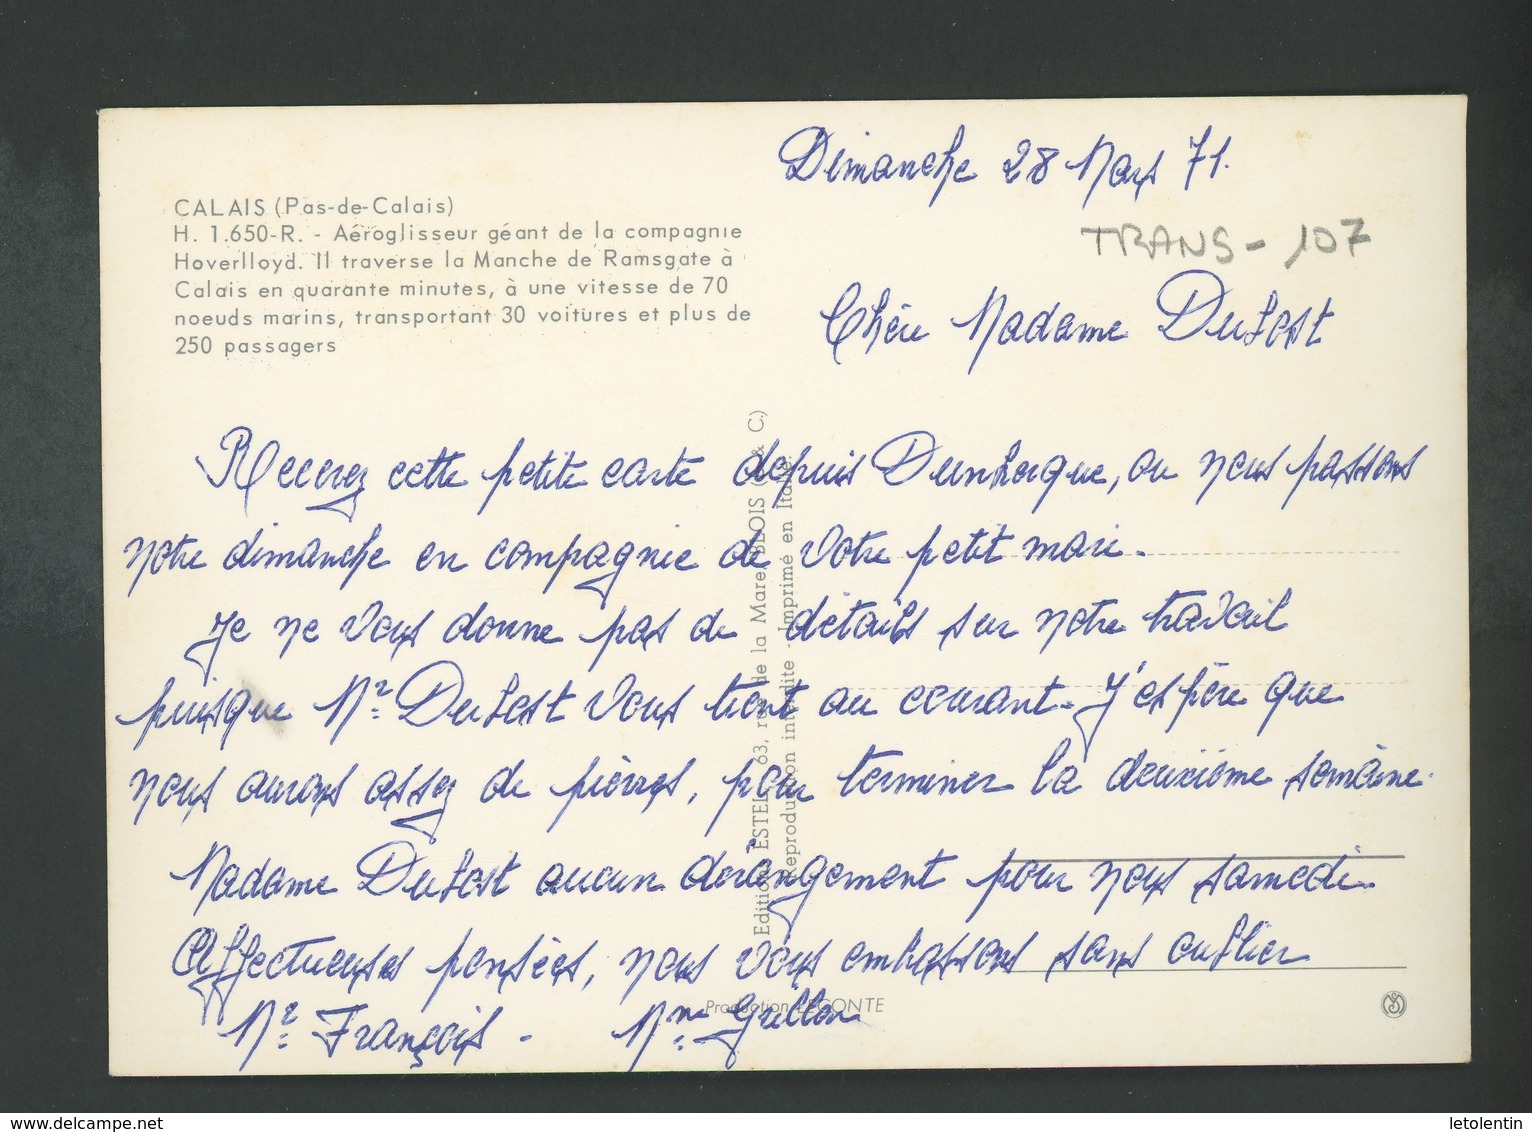 Dimanche 28 Mars 71.
TRANS - 107
CALAIS (Pas-de-Calais)
H. 1.650-R. - Aéroglisseur géant de la compagnie
Hoverlloyd. Il traverse la Manche de Ramsgate à
Calais en quarante minutes, à une vitesse de 70
noeuds marins, transportant 30 voitures et plus de
250 passagers
Chère Madame Dubost
Recevez cette petite carte depuis Dunkerque, ou nous passons
notre dimanche en compagnie de votre petit mari.
Je ne vous donne pas de détails sur notre travail
puisque Mr Dubost vous tient au courant. J'espère que
nous aurons assez de pierres, pour terminer la deuxième semaine.
Madame Dubost aucun dérangement pour nous samedi.
Affectueuses pensées, nous vous embrassons sans oublier
Mr François - Mme
Editions ESTEL, 63, rue de la Mare, BLOIS (L. & C.)
Reproduction interdite - Imprimé en Italie
Production LECONTE
delcampe.net
letolentin